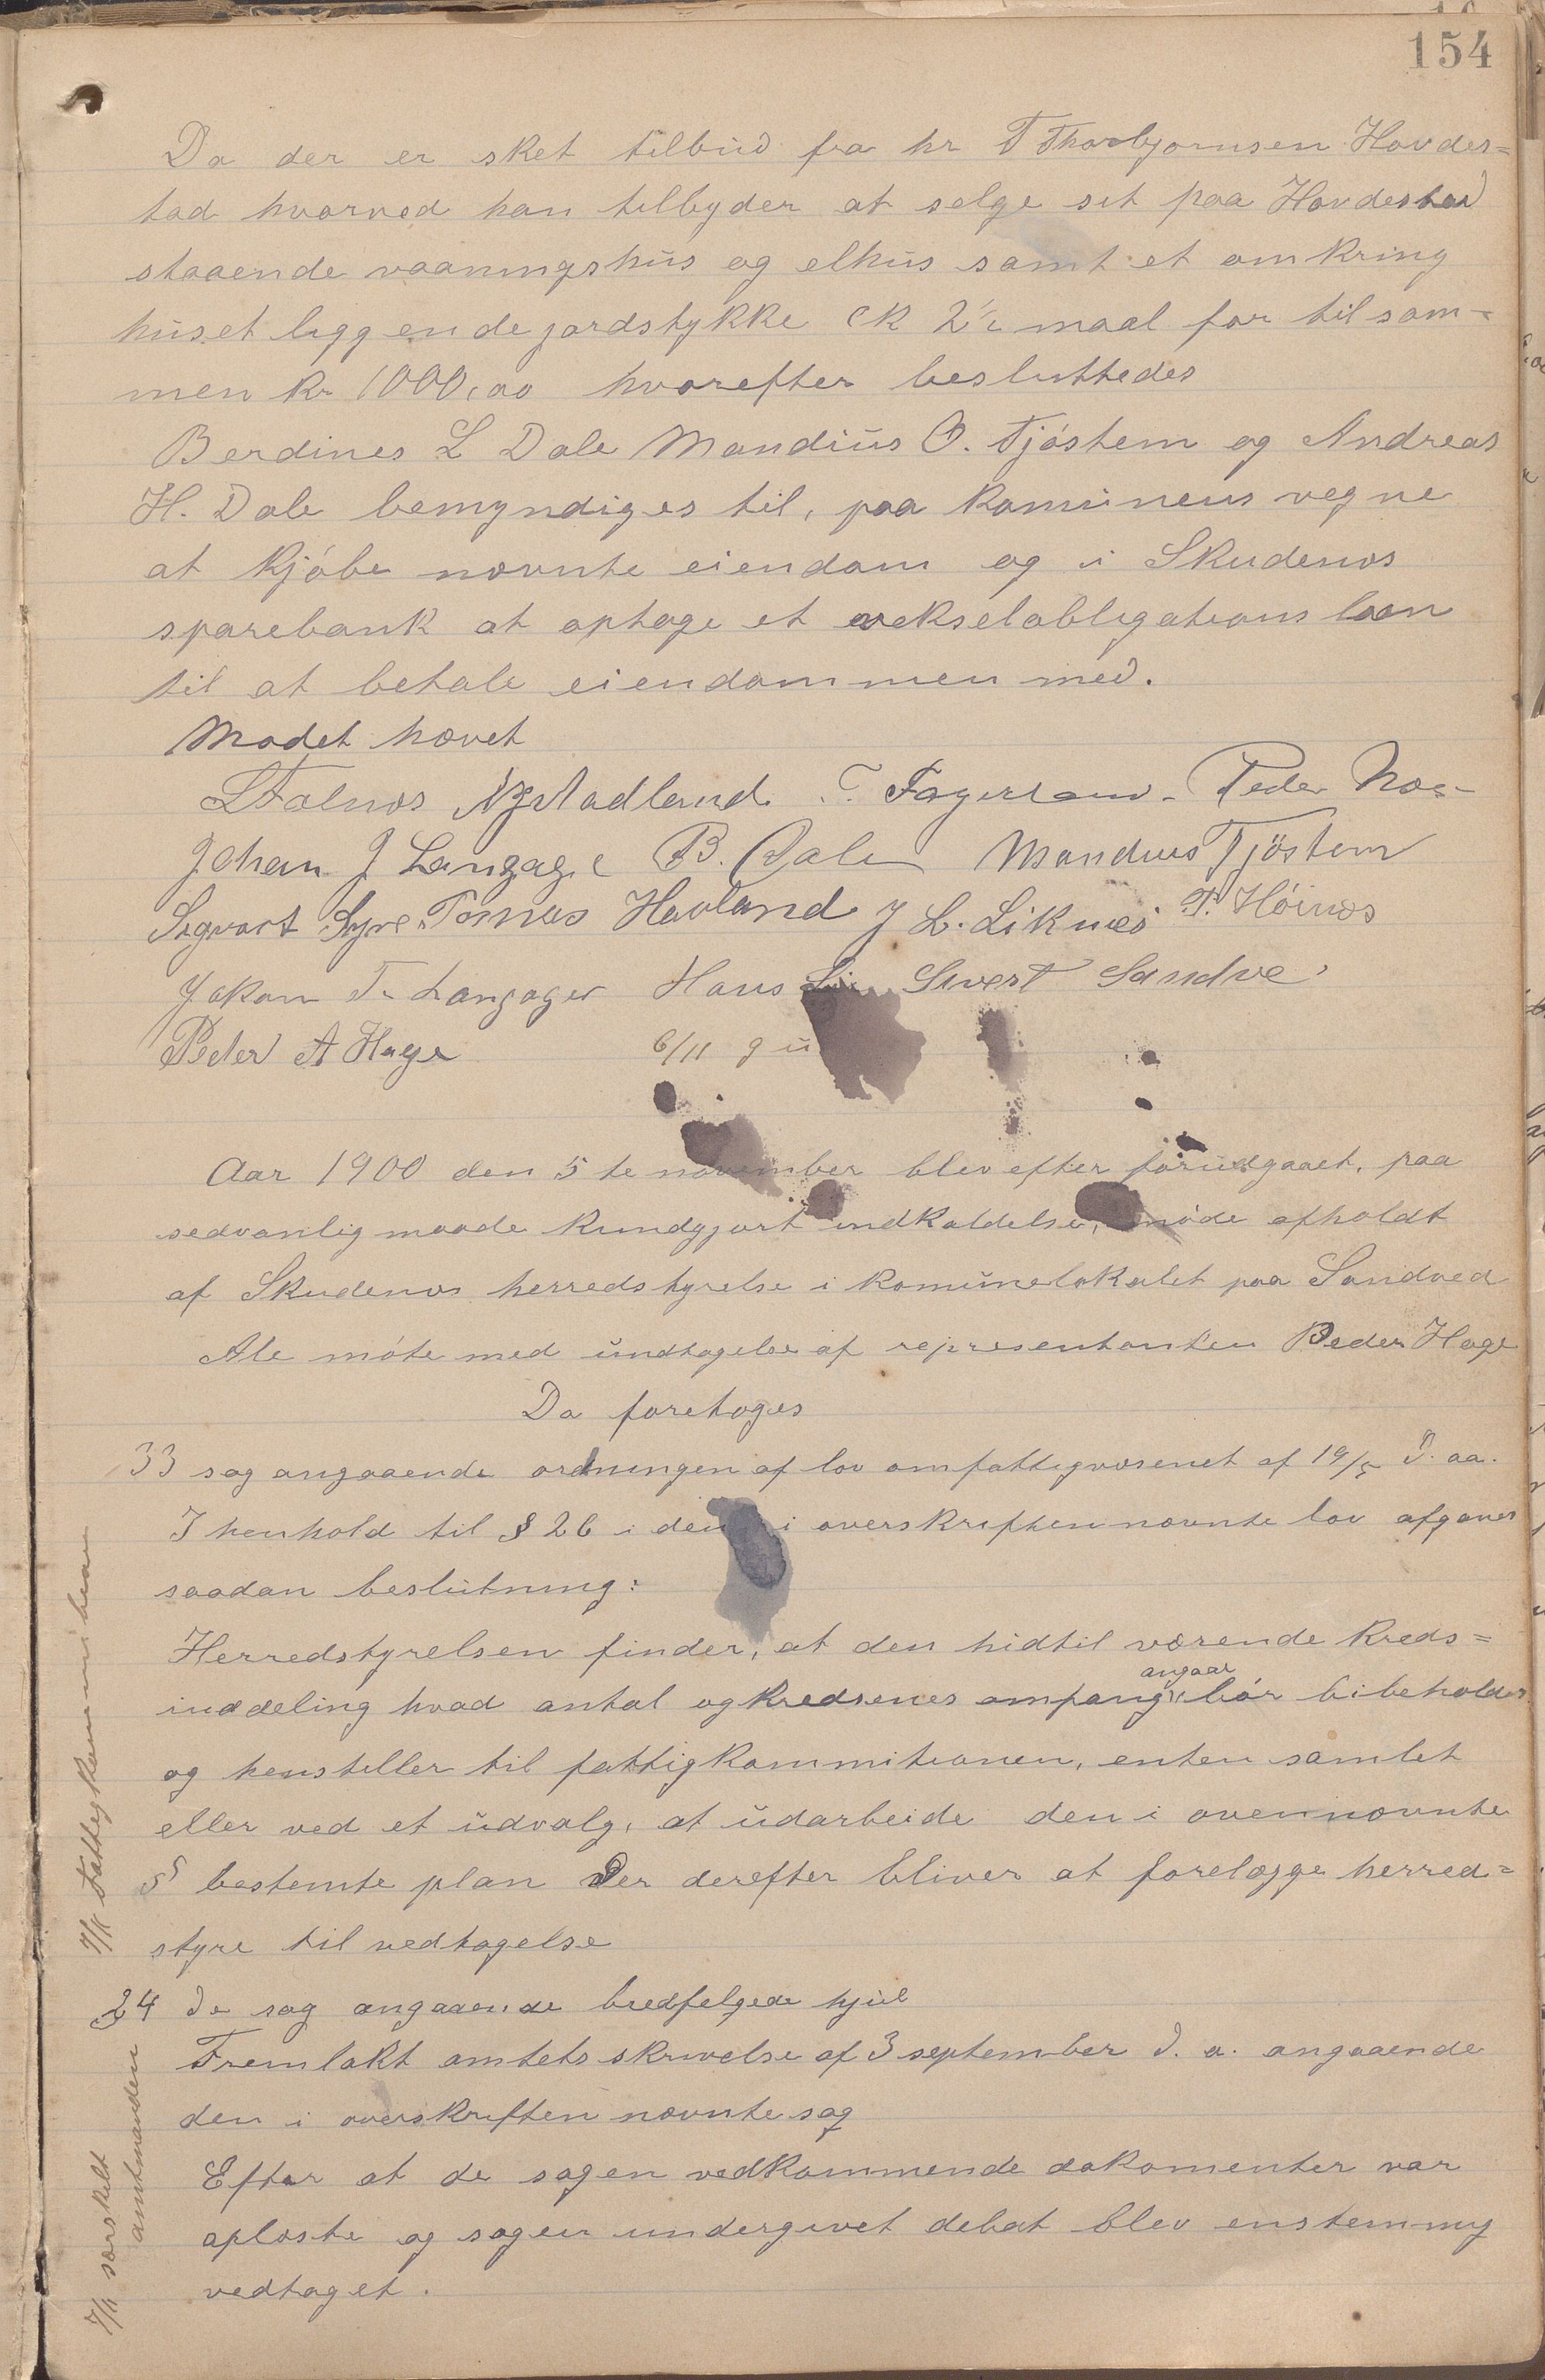 154
Da der er sket tilbud fra hr T Thorbjornsen Hovdes=
tad hvorved han tilbyder at selge sit paa Hovdestad
staaende vaaningshus og elhus samt et omkring
huset liggende jordstykke ck 2½ maal for tilsam=
men kr 1000,00 hvorefter besluttedes
Berdines L Dale Mandius O. Tjöstem og Andreas
H. Dale bemyndiges til, paa komunens vegne
at kjöbe nævnte eiendom og i Skudenæs
sparebank at optage et vekselobligations laan
til at betale eiendommen med.
Modet hævet
L Falnæs Aadland T. Fagerland Peder Næs
Johan J Langage B. Dale Mandius Tjöstem
Sigvart Syre Tomas Hovland J L. Liknes T. Höinæs
Jakon T. Langager Hans Sivert Sandve
Peder A Hage 6/11
Aar 1900 den 5 te november blev efter forudgaaet, paa
sedvanlig maade kundgjort indkaldelse, möde afholdt
af Skudenæs herredstyrelse i komunelokalet paa Sandved
Ale möte med undtagelse af representanten Peder Hage
Da foretoges
33 sag angaaende ordningen af lov omfattigvæsenet af 19/5 d. aa.
I henhold til § 26 i den i overskriften nævnte lov afgaves
saadan beslutning:
Herredstyrelsen finder, at den hidtil værende kreds=
inddeling hvad antal og kredsenes omfang angaar bör bibeholdes
og henstiller til fattigkommitionen, enten samlet
eller ved et udvalg, at udarbeide den i ovennævnte
§ bestemte plan der derefter bliver at forelægge herred=
styre til vedtagelse
7/11 Fattigkommi
34 de sag angaaende bredfelgede hjul
Fremlakt amtets skrivelse af 3 september d. a. angaaende
den i overskriften nævnte sag
Efter at de sagen vedkommende dokomenter var
oplæste og sagen undergivet debat blev enstemmig
vedtaget.
7/11 særskilt
amtmanden